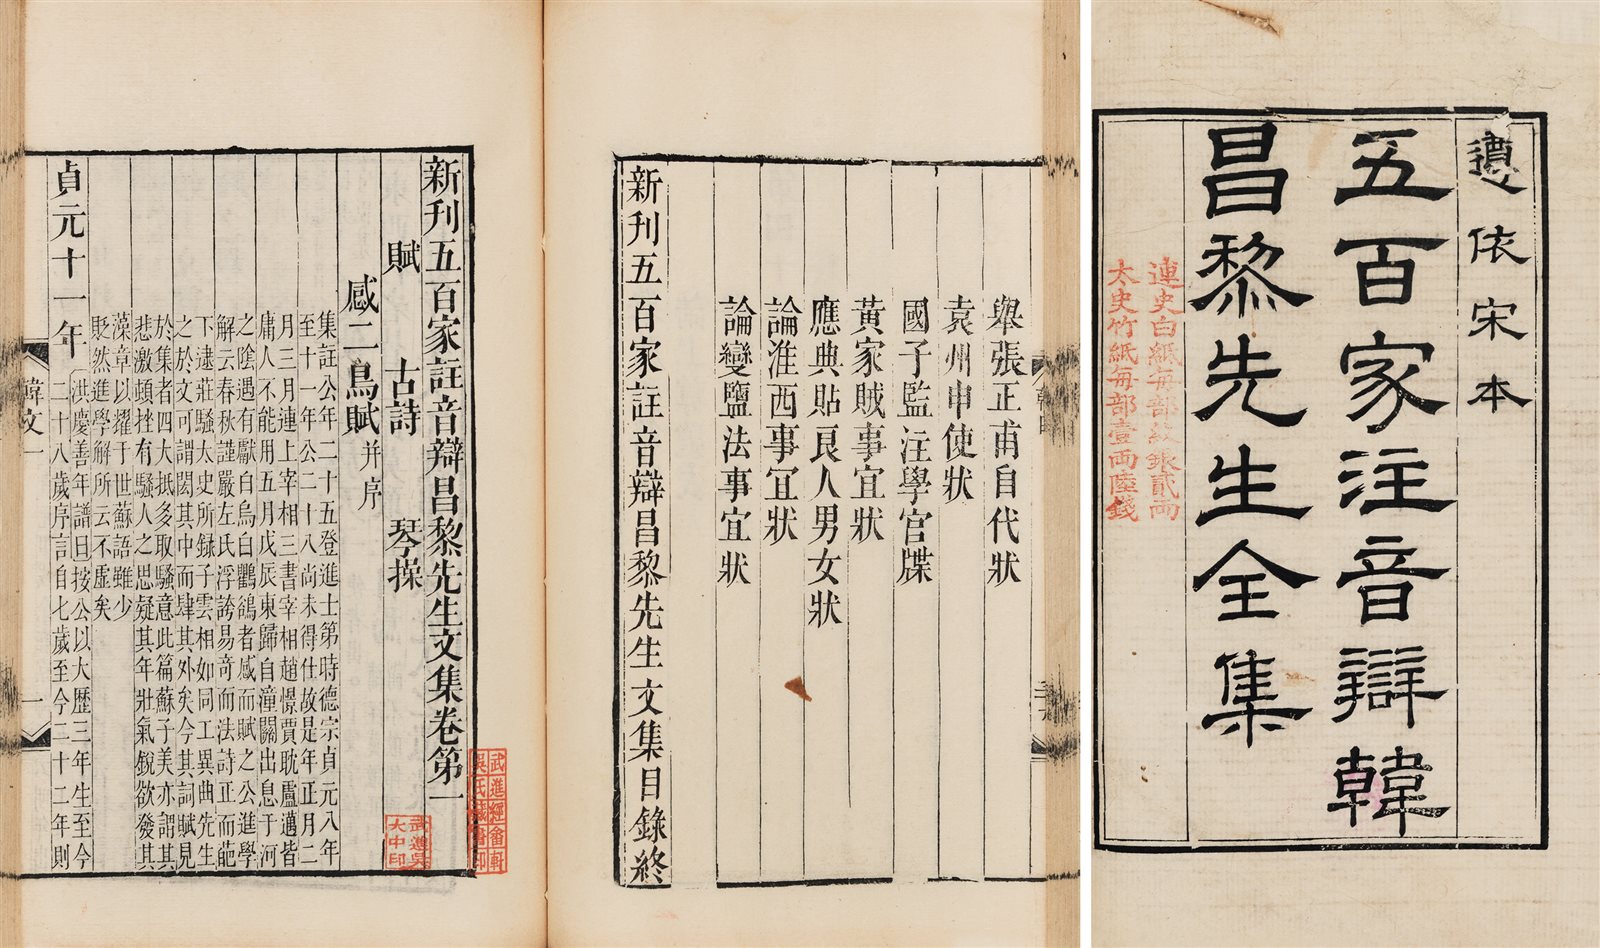 遵依宋本
五百家注音辯韓
昌黎先生全集
連史白紙每部紋銀貳兩
太史竹紙每部壹兩陸錢
舉張正甫自代狀
袁州申使狀
國子監注學官牒
黃家賊事宜狀
應典貼良人男女狀
論淮西事宜狀
論變鹽法事宜狀
新刊五百家註音辯昌黎先生文集目錄終
新刊五百家註音辯昌黎先生文集卷第一
賦 古詩 琴操
感二鳥賦 并序
集註公年二十五登進士第時德宗貞元八年
至十一年公二十八尚未得仕故是年正月二
月三月連上宰相三書宰相趙憬賈耽盧邁皆
庸人不能用五月戊辰東歸自潼關出息于河
之陰遇有獻白烏白鸜鵒者感而賦之公進學
解云春秋謹嚴左氏浮誇易奇而法詩正而葩
下逮莊騷太史所録子雲相如同工異曲先生
之於文可謂閎其中而肆其外矣今其詞賦見
於集者四大抵多取騷意此篇蘇子美亦謂其
悲激頓挫有騷人之思疑其年壯氣銳欲發其
藻章以耀于世蘇語雖少
貶然進學解所云不虛矣
貞元十一年 洪慶善年譜曰按公以大歷三年生至今
二十八歲序言自七歲至今二十二年則
韓文一
一
武進經畬軒
吳氏藏書印
武進吳
大中印